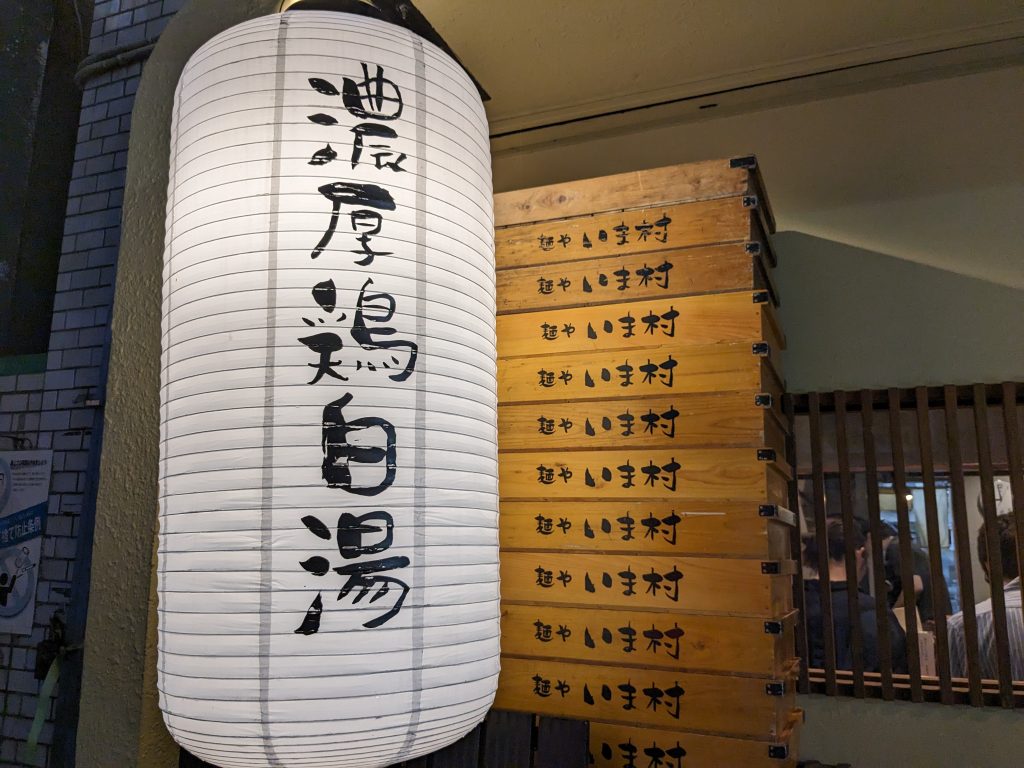 濃厚鶏白湯
麺や いま村
麺や いま村
麺や いま村
麺や いま村
麺や いま村
麺や いま村
麺や いま村
麺や いま村
麺や いま村
麺や いま村
いま村
捨て防止条例